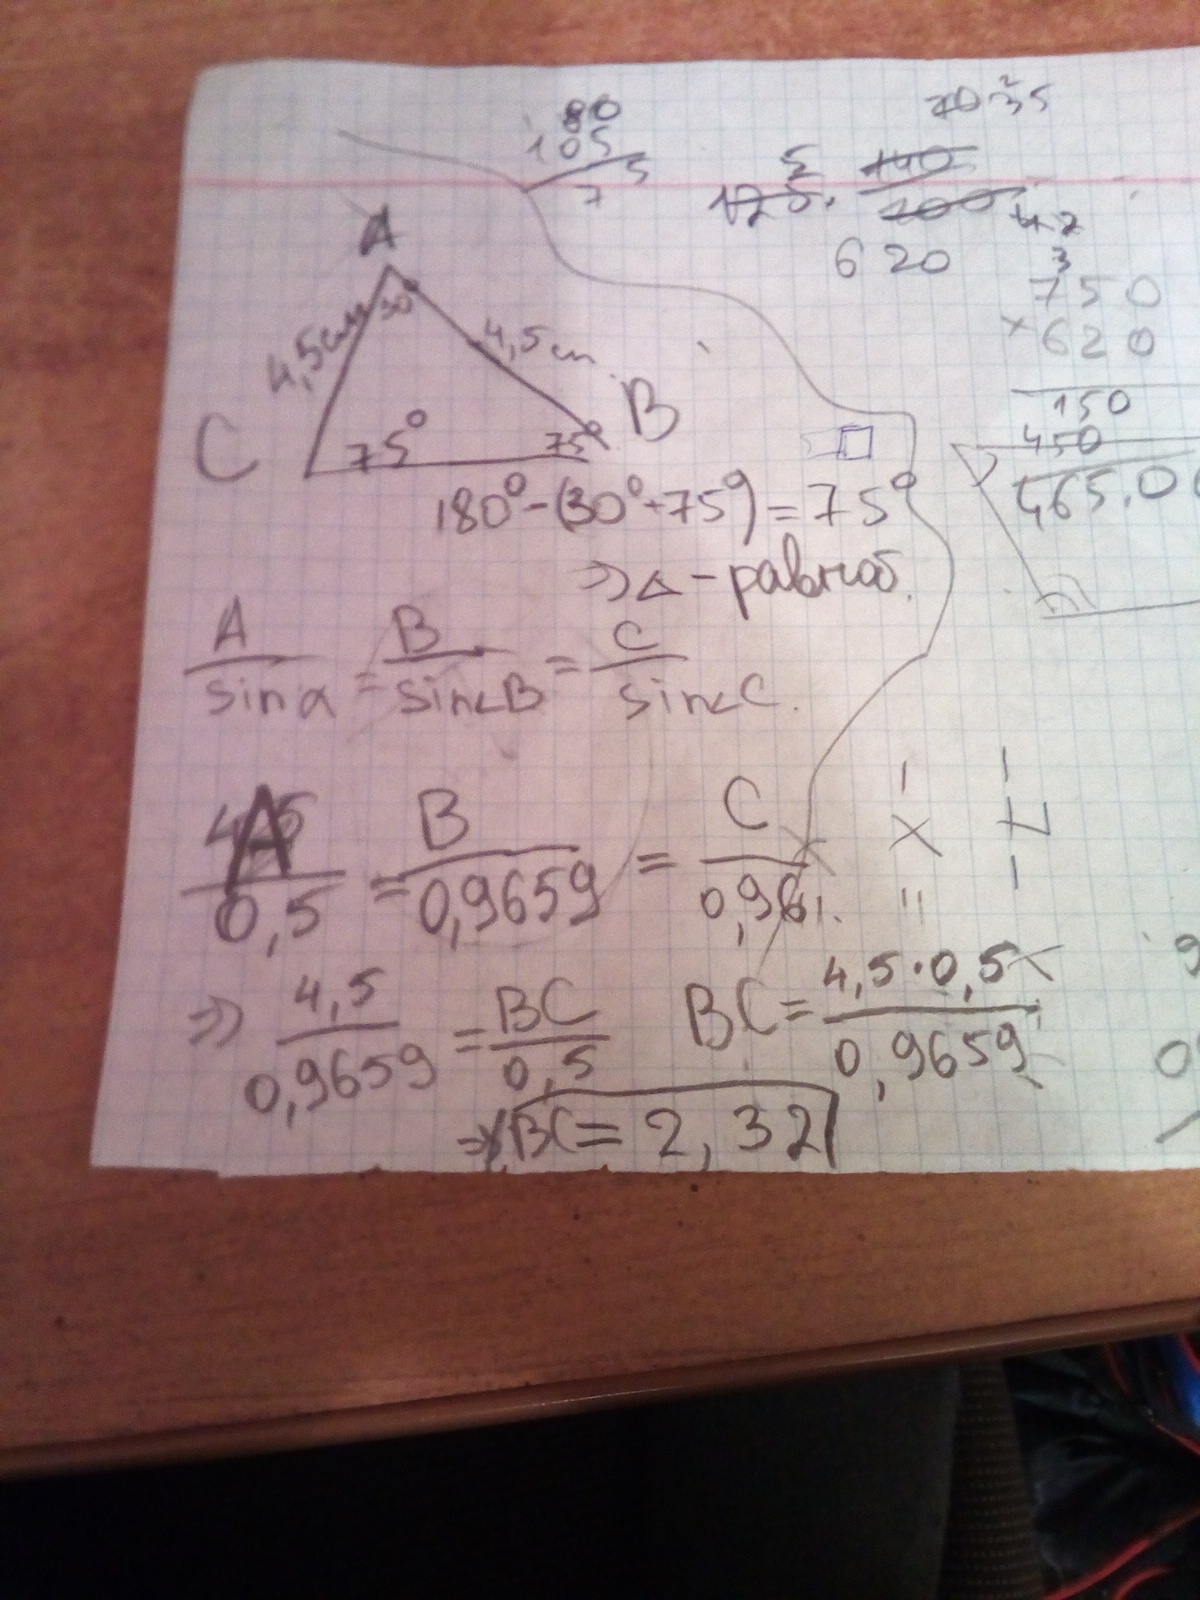 80
105
7 5
70 35
5
125. 140
100
42
620
3
750
× 620
150
450
465.0
A
30°
4,5 см
4,5 см
C 75° 75° B
180° - (30° + 75°) = 75°
⇒ Δ - равноб.
A/sin α = B/sin∠B = C/sin∠C.
A/0,5 = B/0,9659 = C/0,961.
⇒ 4,5/0,9659 = BC/0,5 BC = 4,5·0,5/0,9659
⇒ BC = 2,32